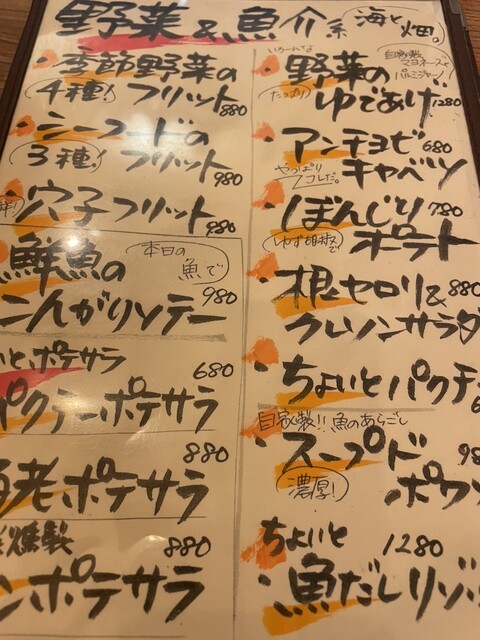 野菜&魚介系 海と畑。
・季節野菜の
4種! フリット 880
・シーフードの
3種! フリット 980
・穴子フリット 980
鮮魚の 本日の魚で
こんがりソテー 980
いとポテサラ 680
パクチーポテサラ 880
海老ポテサラ
燻製 880
ンポテサラ
・野菜の 自家製マヨネーズ
たっぷり ゆであげ 1280
・アンチョビ 680
やっぱりコレだ。 キャベツ
・ぼんじり 780
ゆず胡椒で ポテト
・根セロリ& 880
クレソンサラダ
・ちょいとパクチ
自家製!! 魚のあらごし
・スープド 98
濃厚! ポワ
ちょいと 1280
・魚だしリゾ